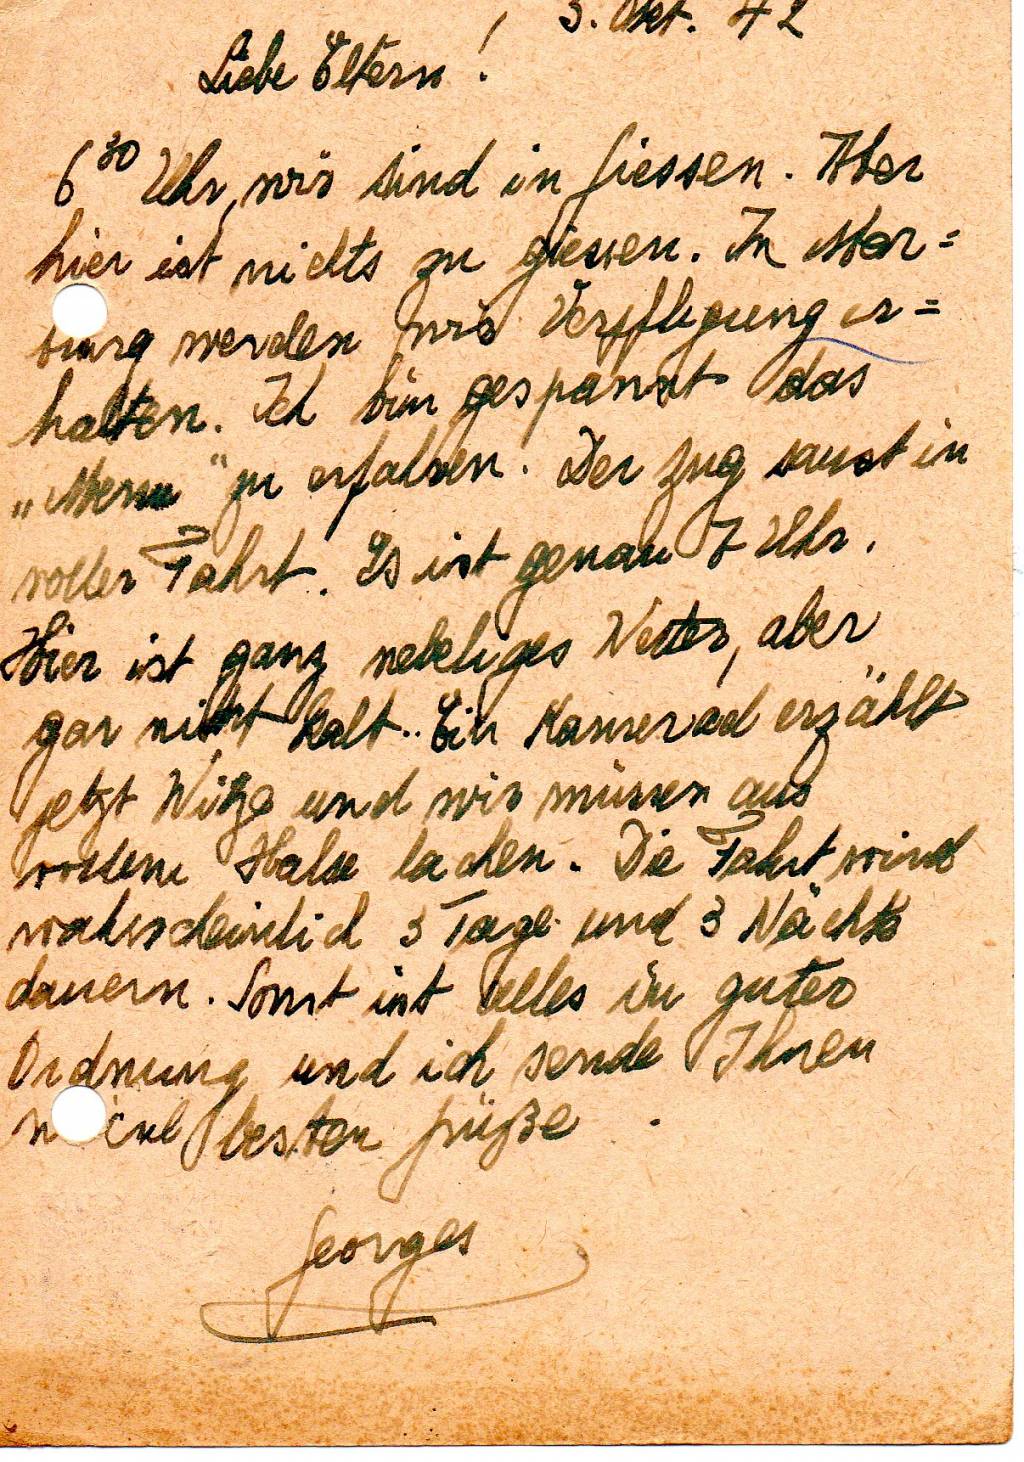 3. Okt. 42
Liebe Eltern!
6³⁰ Uhr, wir sind in Giessen. Aber
hier ist nichts zu giessen. In Mar=
burg werden wir Verpflegung er=
halten. Ich bin gespannt das
„Menu" zu erfahren. Der Zug saust in
voller Fahrt. Es ist genau 7 Uhr.
Hier ist ganz nebeliges Wetter, aber
gar nicht kalt. Ein Kamerad erzählt
jetzt Witze und wir müssen aus
vollem Halse lachen. Die Fahrt wird
wahrscheinlich 3 Tage und 3 Nächte
dauern. Sonst ist alles in guter
Ordnung und ich sende Ihnen
besten Grüße
Georges